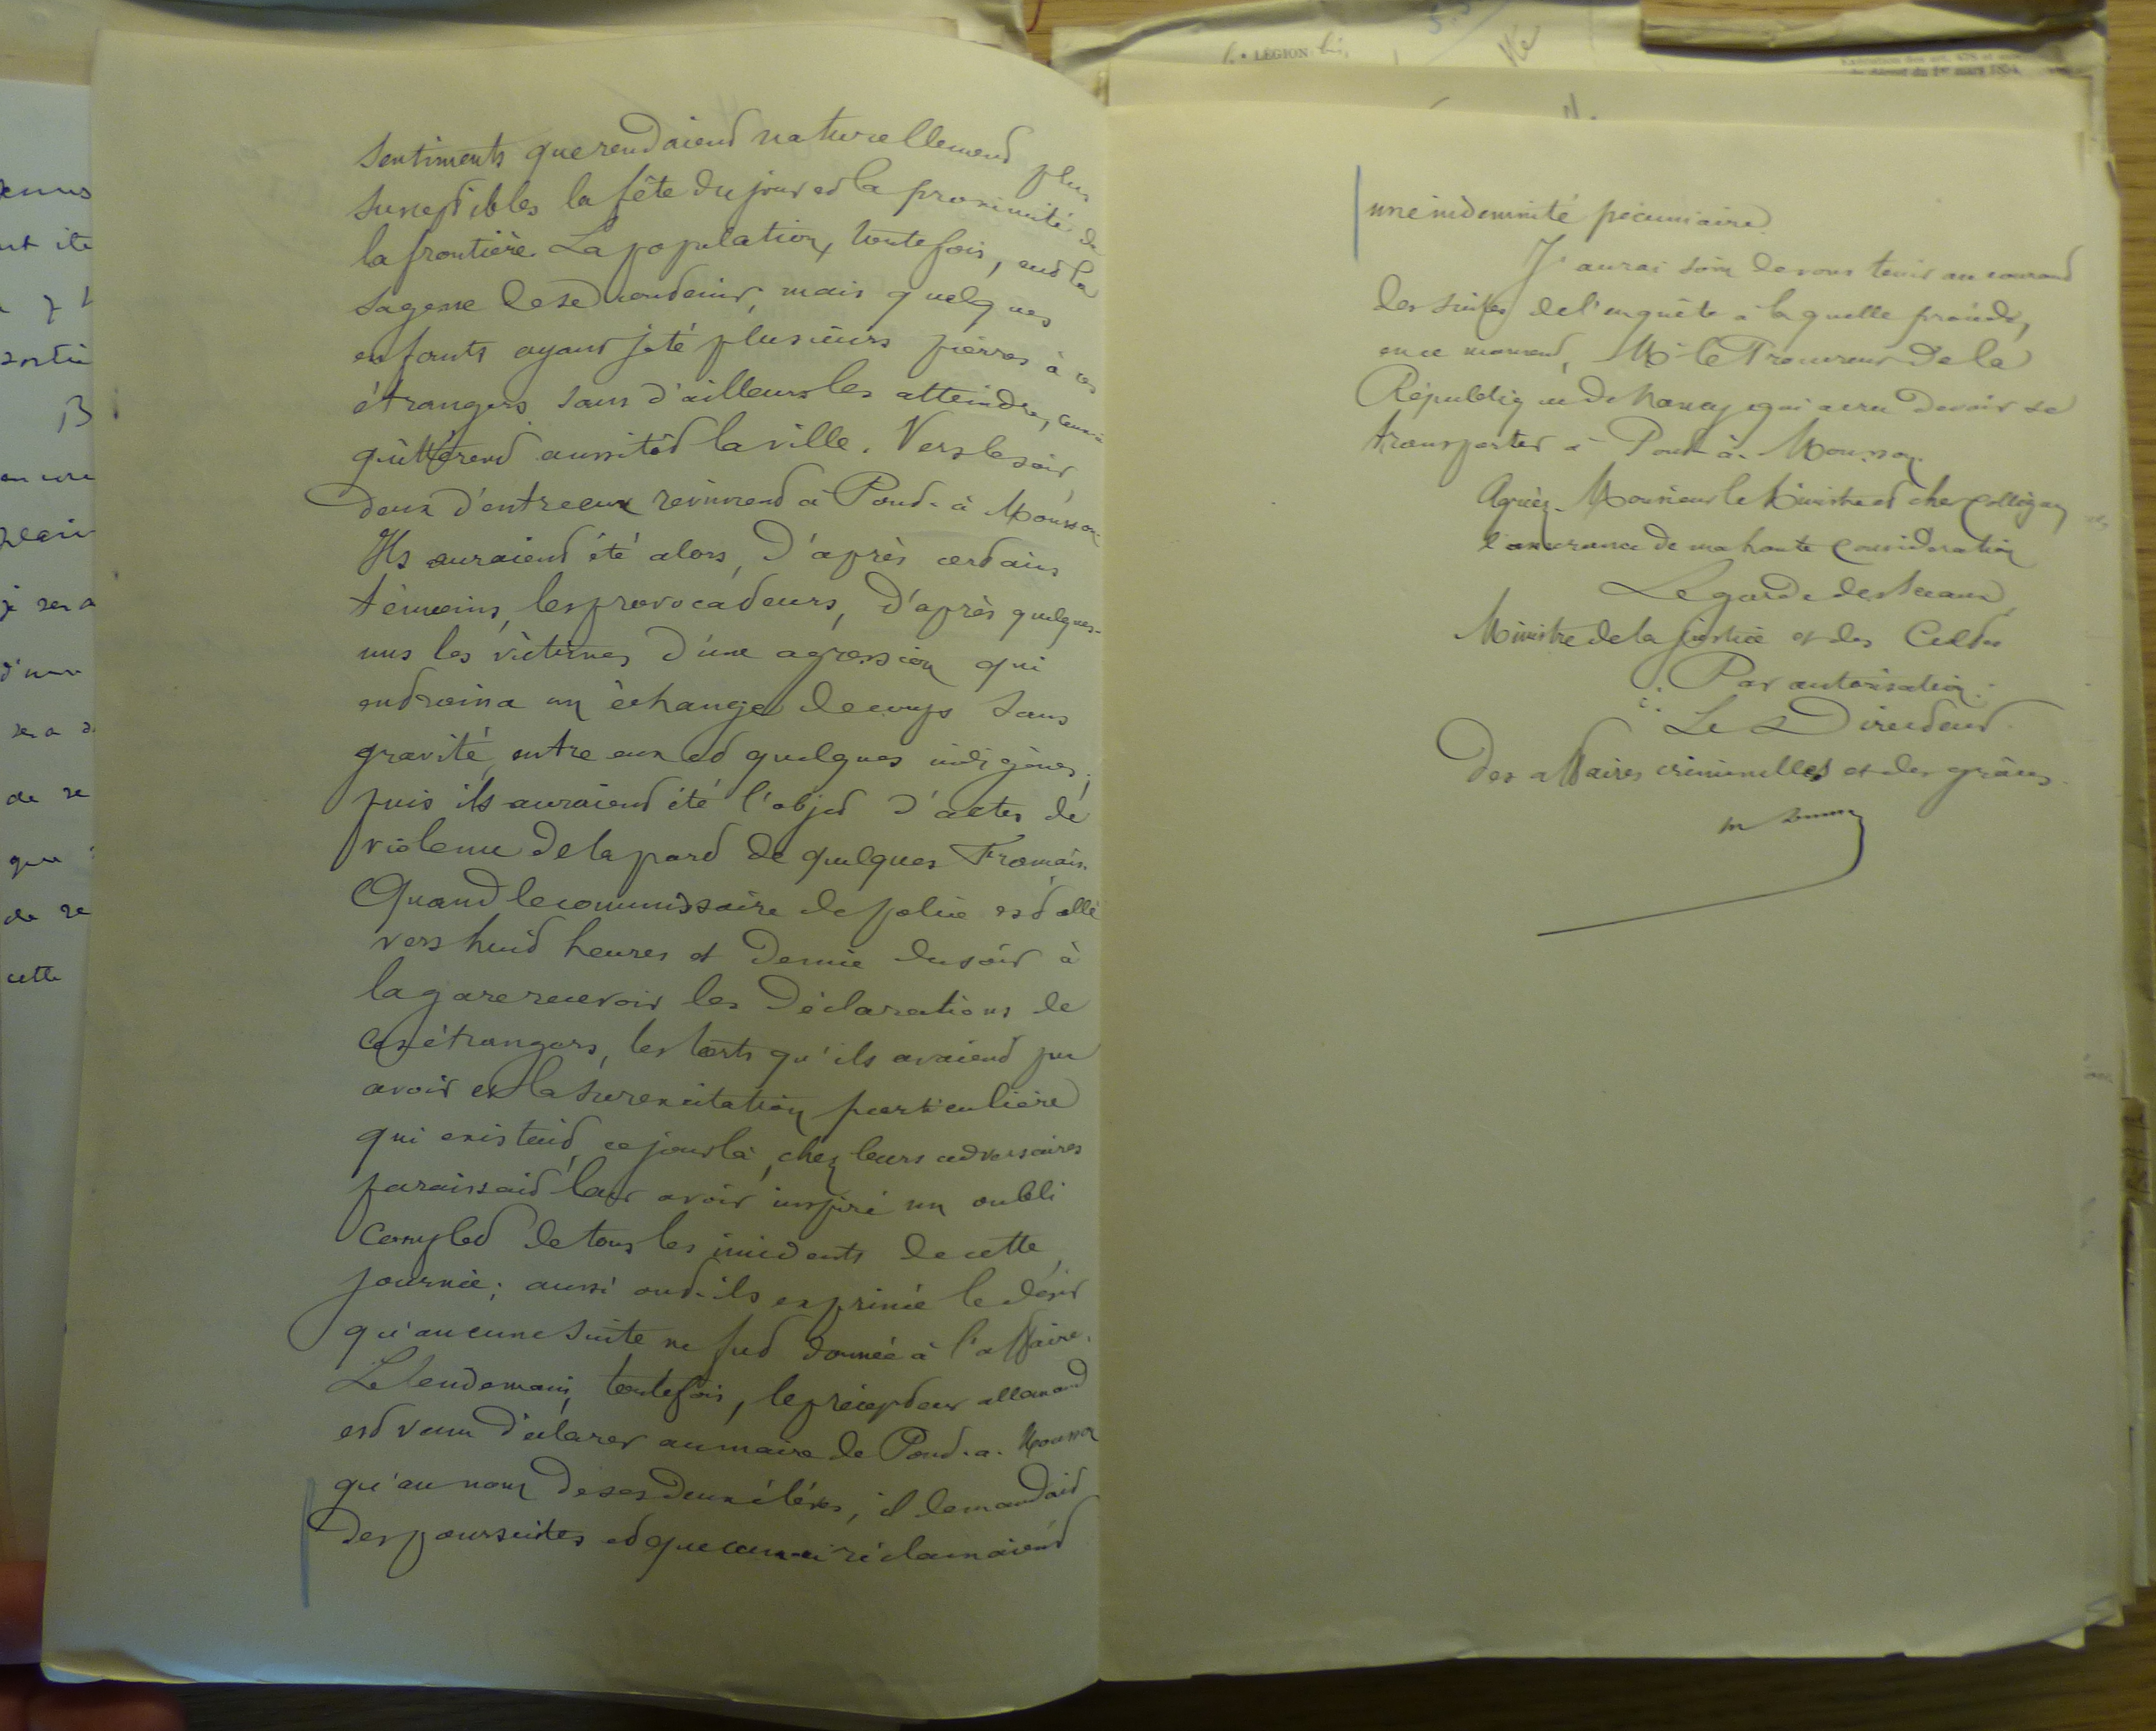 sentiments que rendaient naturellement plus
susceptibles la fête du jour et la proximité de
la frontière. La population, toutefois, eut la
sagesse de se contenir, mais quelques
enfants ayant jeté plusieurs pierres à ces
étrangers sans d'ailleurs les atteindre, ceux-ci
quittèrent aussitôt la ville. Vers le soir
deux d'entre eux revinrent à Pont-à-Mousson.
Ils auraient été alors, d'après certains
témoins, les provocateurs, d'après quelques-
uns les victimes d'une agression qui
entraina un échange de coups sans
gravité, entre eux et quelques indigènes;
puis ils auraient été l'objet d'actes de
violence de la part de quelques Français.
Quand le commissaire de police est allé
vers huit heures et demie du soir à
la gare recevoir les déclarations de
ces étrangers, les torts qu'ils avaient pu
avoir et la surexcitation particulière
qui existait, ce jour là, chez leurs adversaires
paraissait leur avoir inspiré un oubli
complet de tous les incidents de cette
journée; aussi ont-ils exprimé le désir
qu'aucune suite ne fut donnée à l'affaire.
Le lendemain, toutefois, le précepteur allemand
est venu déclarer au maire de Pont-a-Mousson
qu'au nom de ses deux élèves, il demandait
des poursuites et que ceux-ci réclamaient
LÉGION bis
du décret du 1er mars 1854
une indemnité pécuniaire.
J'aurai soin de vous tenir au courant
des suites de l'enquête à laquelle procède,
en ce moment, Mr le Procureur de la
République de Nancy qui a cru devoir se
transporter à Pont-à-Mousson.
Agréez, Monsieur le Ministre et cher collègue,
l'assurance de ma haute considération
Le garde des sceaux,
Ministre de la justice et des Cultes
Par autorisation:
Le Directeur
des affaires criminelles et des grâces.